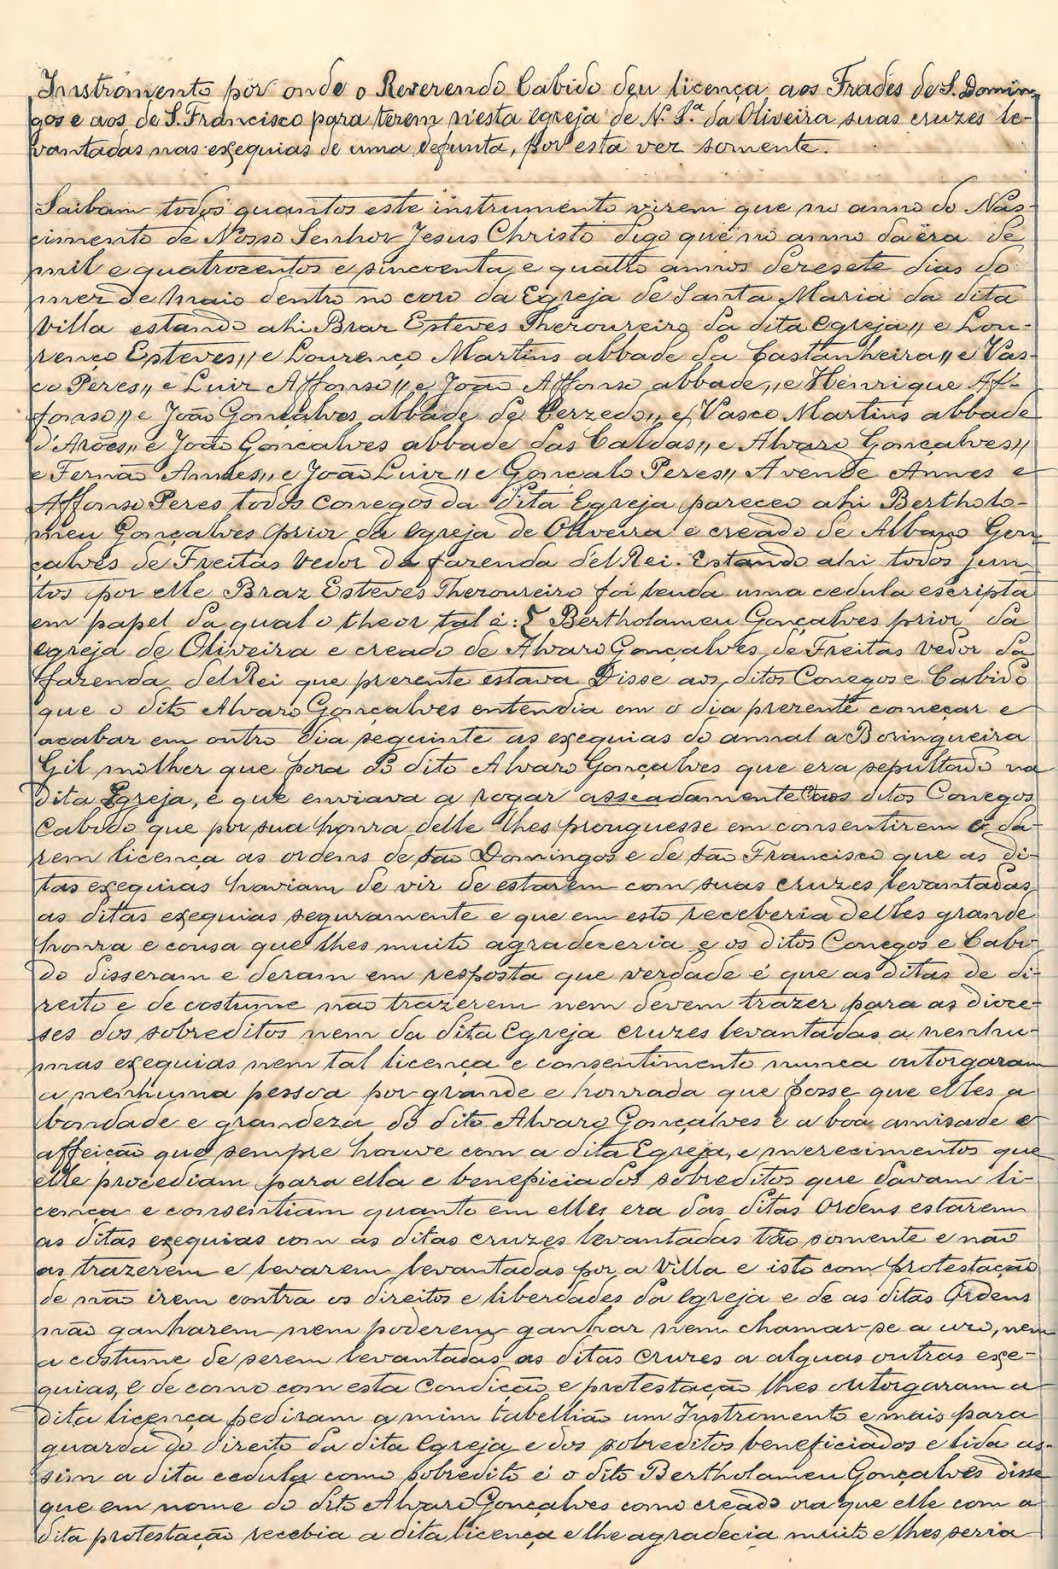 Instromento por onde o Reverendo Cabido deu licença aos Frades de S. Domin-
gos e aos de S. Francisco para terem n'esta egreja de N. S.ª da Oliveira suas cruzes le-
vantadas nas exequias de uma defunta, por esta vez somente.
Saibam todos quantos este instrumento virem que no anno do Nas-
cimento de Nosso Senhor Jesus Christo digo que no anno da èra de
mil e quatrocentos e sincoenta e quatro annos dezesete dias do
mez de maio dentro no coro da Egreja de Santa Maria da dita
Villa estando ahi Braz Esteves Thezoureiro da dita egreja,, e Lou-
renço Esteves,, e Lourenço Martins abbade da Castanheira,, e Vas-
co Peres,, e Luiz Affonso,, e João Affonso abbade,, e Henrique Af-
fonso,, e João Gonçalves abbade de Cerzedo,, e Vasco Martins abbade
d'Arões,, e João Gonçalves abbade das Caldas,, e Alvaro Gonçalves,,
e Fernão Annes,, e João Luiz,, e Gonçalo Peres,, Avende Annes e
Affonso Peres todos conegos da dita Egreja pareceo ahi Bertholo-
meu Gonçalves prior da egreja de Oliveira e creado de Alvaro Gon-
çalves de Freitas Vedor da fazenda del Rei. Estando ahi todos jun-
tos por elle Braz Esteves Thezoureiro foi leuda uma cedula escripta
em papel da qual o theor tal é: Bertholameu Gonçalves prior da
egreja de Oliveira e creado de Alvaro Gonçalves de Freitas vedor da
fazenda del Rei que prezente estava Disse aos ditos Conegos e Cabido
que o dito Alvaro Gonçalves entendia em o dia prezente começar e
acabar em outro dia seguinte as exequias do annal a Boringueira
Gil molher que fora do dito Alvaro Gonçalves que era sepultado na
dita Egreja, e que enviava a rogar asseadamente aos ditos Conegos
Cabido que por sua honra delle lhes prouguesse em consentirem e da-
rem licença as ordens de são Domingos e de são Francisco que as di-
tas exequias haviam de vir de estarem com suas cruzes levantadas
as ditas exequias seguramente e que em esto receberia delles grande
honra e cousa que lhes muito agradeceria e os ditos Conegos e Cabi-
do disseram e deram em resposta que verdade é que as ditas de di-
reito e de costume não trazerem nem devem trazer para as dioce-
ses dos sobreditos nem da dita Egreja cruzes levantadas a nenhu-
mas exequias nem tal licença e consentimento nunca outorgaram
a nenhuma pessoa por grande e honrada que fosse que elles a
bondade e grandeza do dito Alvaro Gonçalves e a boa amisade e
affeição que sempre houve com a dita Egreja, e merecimentos que
elle procediam para ella e beneficiados sobreditos que davam li-
cença e consentiam quanto em elles era das ditas Ordens estarem
as ditas exequias com as ditas cruzes levantadas tão somente e não
as trazerem e levarem levantadas por a Villa e isto com protestação
de não irem contra os direitos e liberdades da Egreja e de as ditas Ordens
não ganharem nem poderem ganhar nem chamar-se a uzo, nem
a costume de serem levantadas as ditas cruzes a alguas outras exe-
quias, e de como com esta condição e protestação lhes outorgaram a
dita licença pediram a mim tabellião um Instromento e mais para
guarda do direito da dita Egreja e dos sobreditos beneficiados e lida as-
sim a dita cedula como sobredito é o dito Bertholameu Gonçalves disse
que em nome do dito Alvaro Gonçalves como creado ora que elle com a
dita protestação recebia a dita licença e lhe agradecia muito e lhes seria